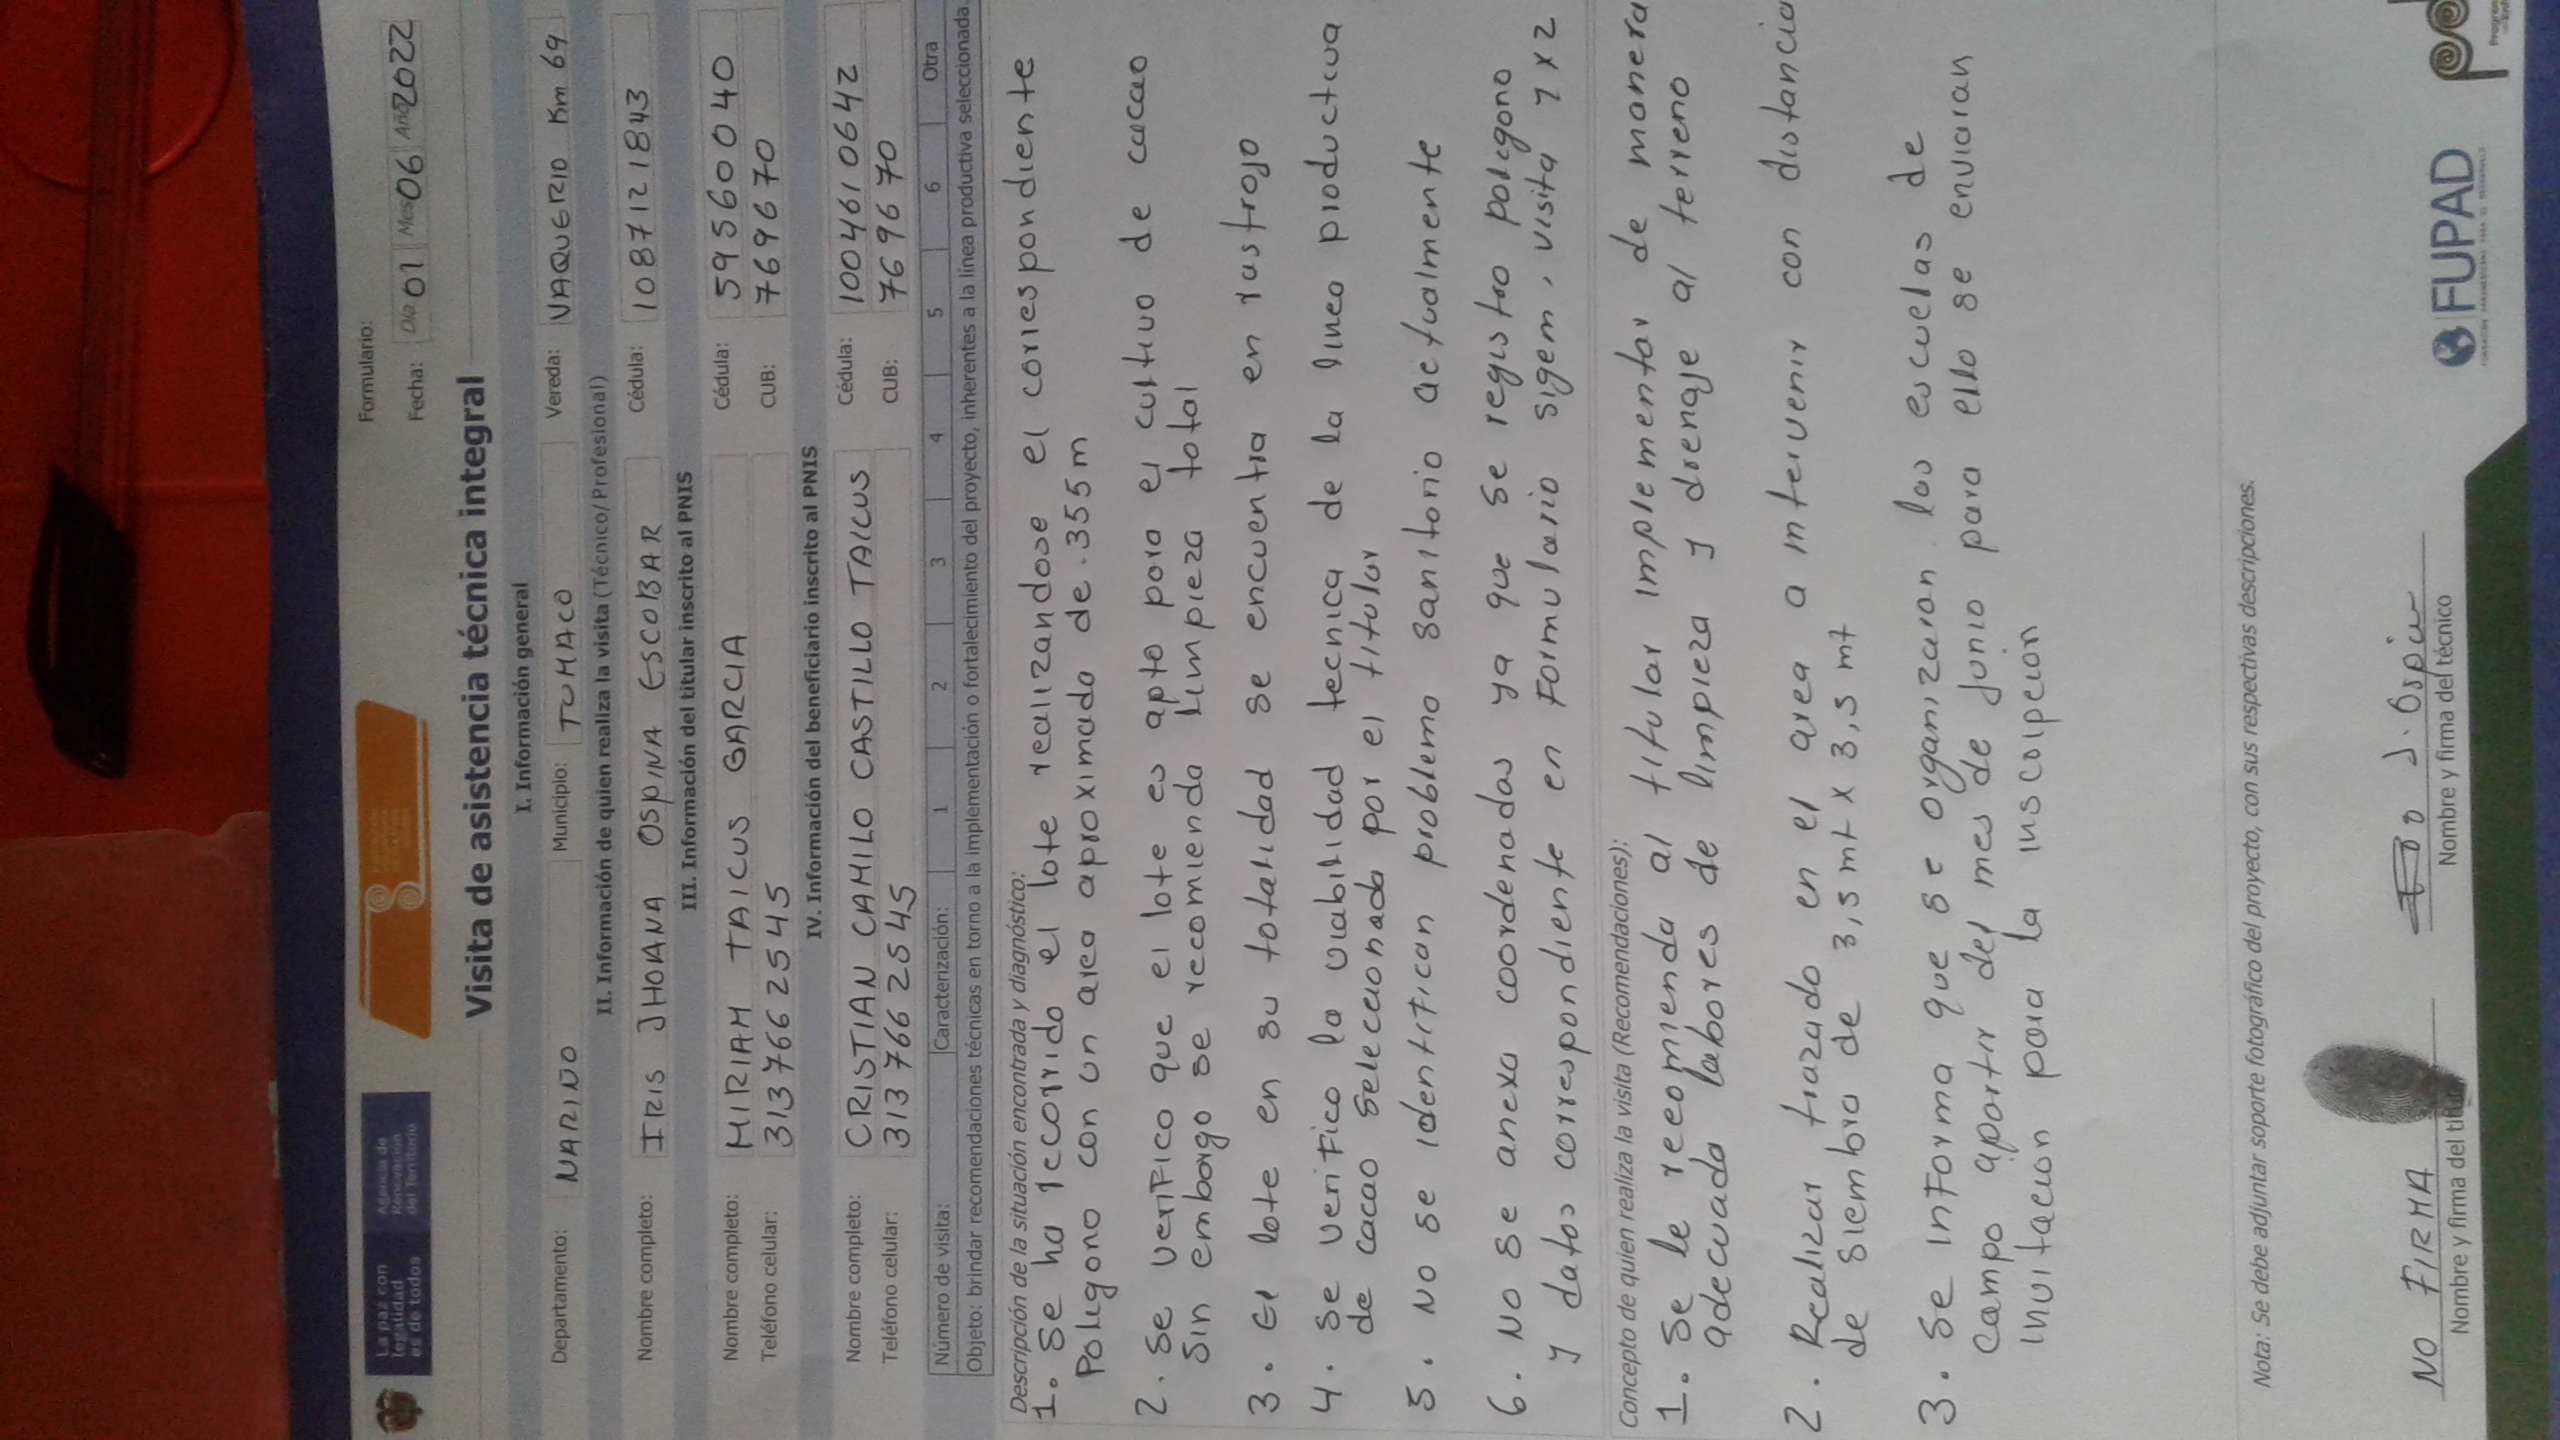 La paz con
legalidad
es de todos
Agencia de
Renovación
del Territorio
Formulario:
Fecha: Día 01 Mes 06 Año 2022
Visita de asistencia técnica integral
I. Información general
Departamento: NARIÑO Municipio: TUMACO Vereda: VAQUERIO Km 69
II. Información de quien realiza la visita (Técnico/Profesional)
Nombre completo: IRIS JHOANA OSPINA ESCOBAR Cédula: 1087121843
III. Información del titular inscrito al PNIS
Nombre completo: MIRIAM TAICUS GARCIA Cédula: 59560040
Teléfono celular: 3137662545 CUB: 769670
IV. Información del beneficiario inscrito al PNIS
Nombre completo: CRISTIAN CAMILO CASTILLO TAICUS Cédula: 1004610642
Teléfono celular: 3137662545 CUB: 769670
Número de visita: Caracterización: 1 2 3 4 5 6 Otra
Objeto: brindar recomendaciones técnicas en torno a la implementación o fortalecimiento del proyecto, inherentes a la línea productiva seleccionada.
Descripción de la situación encontrada y diagnóstico:
1. Se ha recorrido el lote realizandose el correspondiente
Poligono con un area aproximada de .355m
2. Se verifico que el lote es apto para el cultivo de cacao
sin embargo se recomienda limpieza total
3. El lote en su totalidad se encuentra en rastrojo
4. Se verifico la viabilidad tecnica de la linea productiva
de cacao seleccionada por el titular
5. No se identifican problema sanitario actualmente
6. No se anexa coordenadas ya que se registro poligono
y datos correspondiente en formulario sigem, visita 1 x 2
Concepto de quien realiza la visita (Recomendaciones):
1. Se le recomienda al titular implementar de manera
adecuada labores de limpieza y drenaje al terreno
2. Realizar trazado en el area a intervenir con distancia
de siembra de 3,5 mt x 3,5 mt
3. Se informa que se organizaran las escuelas de
campo apartir del mes de Junio para ello se enviaran
invitacion para la inscripcion
Nota: Se debe adjuntar soporte fotográfico del proyecto, con sus respectivas descripciones.
NO FIRMA
Nombre y firma del
J. Ospina
Nombre y firma del técnico
FUPAD